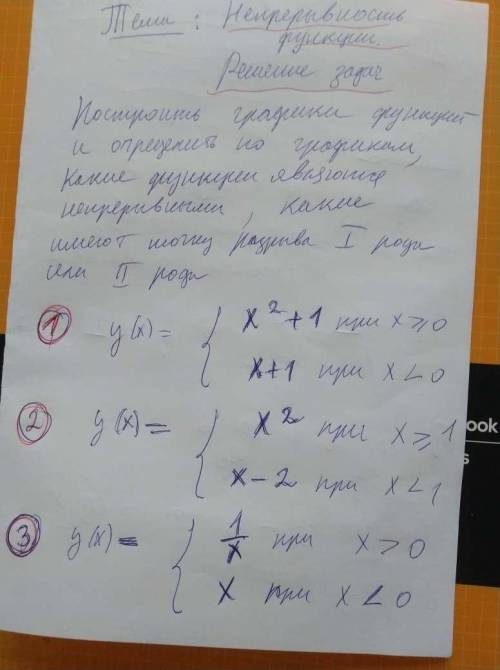 Тема: Непрерывность
функции.
Решение задач
Построить графики функций
и определить по графикам,
какие функции являются
непрерывными, какие
имеют точку разрыва I рода
или II рода
① y(x) = { x² + 1 при x ≥ 0
x + 1 при x < 0
② y(x) = { x² при x ≥ 1
x - 2 при x < 1
③ y(x) = { 1/x при x > 0
x при x < 0
ook
s